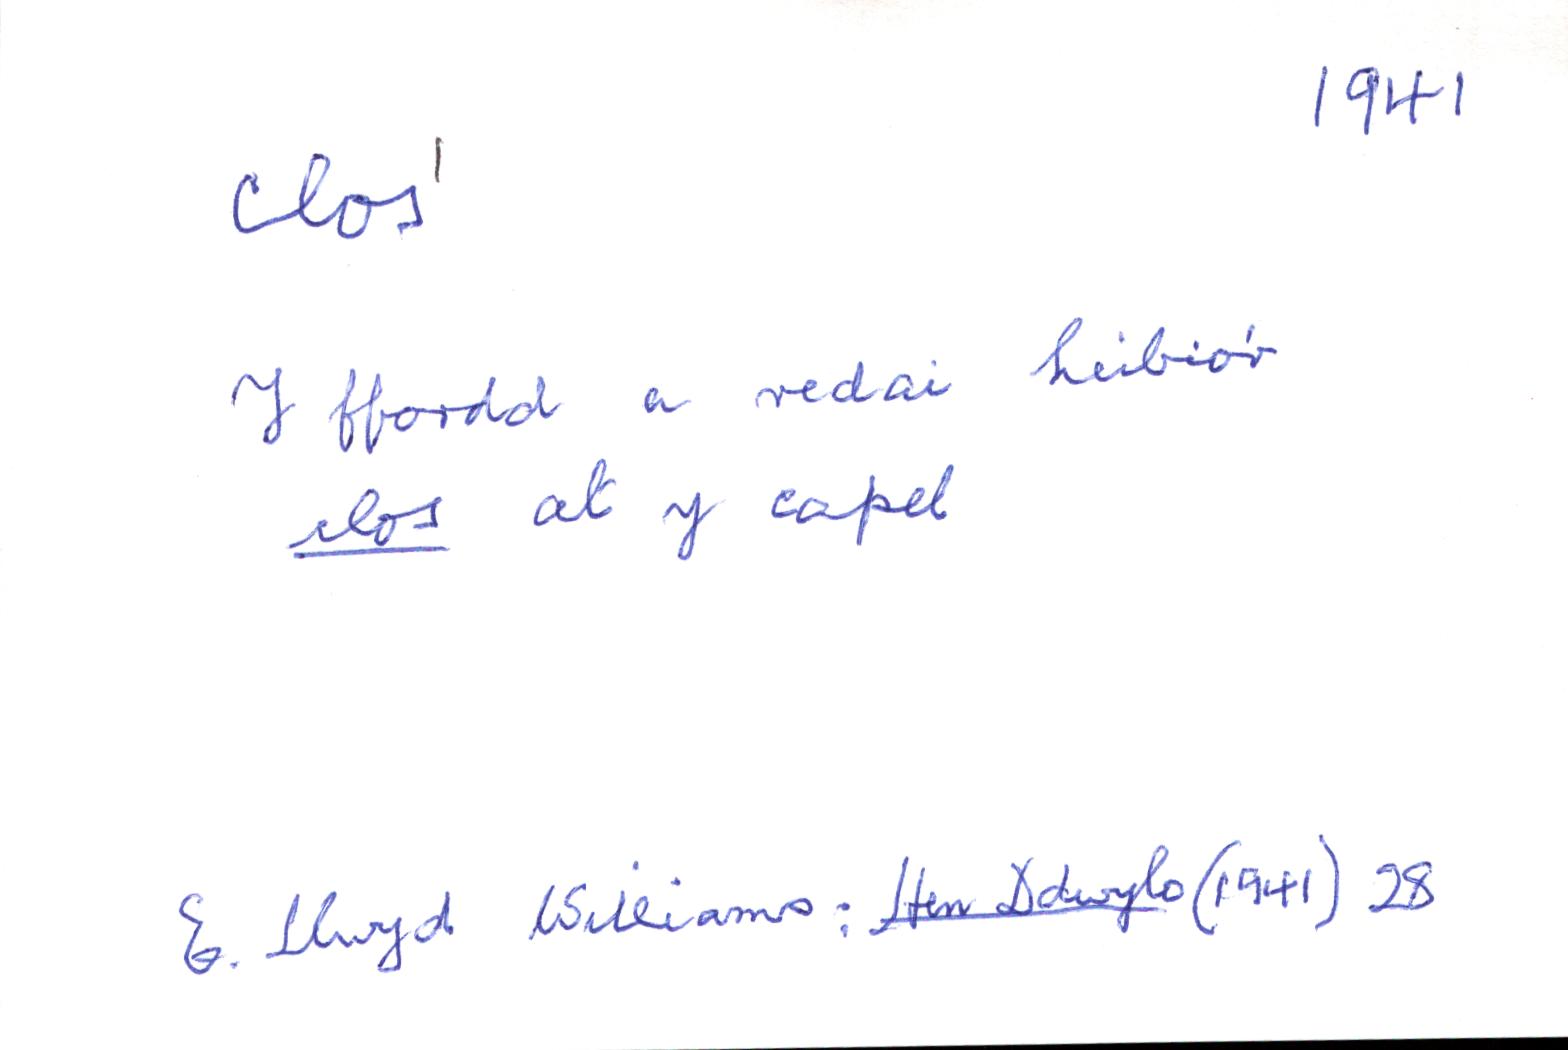 1941
clos¹
Y ffordd a redai heibio'r
clos at y capel
E. Llwyd Williams: Hen Ddwylo (1941) 28